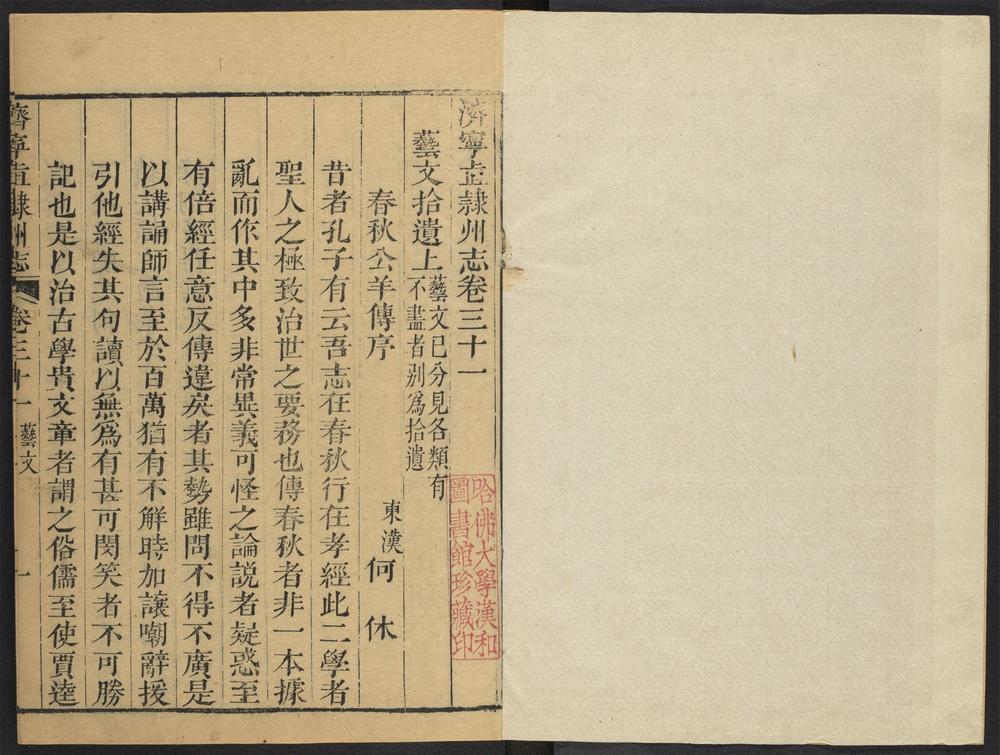 濟寧直隷州志卷三十一
藝文拾遺上
藝文已分見各類有
不盡者别為拾遺
春秋公羊傳序
東漢 何休
昔者孔子有云吾志在春秋行在孝經此二學者
聖人之極致治世之要務也傳春秋者非一本據
亂而作其中多非常異義可怪之論説者疑惑至
有倍經任意反傳違戾者其勢雖問不得不廣是
以講誦師言至於百萬猶有不解時加讓嘲辭援
引他經失其句讀以無為有甚可閔笑者不可勝
記也是以治古學貴文章者謂之俗儒至使賈逵
濟寧直隷州志 卷三十一 藝文 一
哈佛大學漢和
圖書館珍藏印